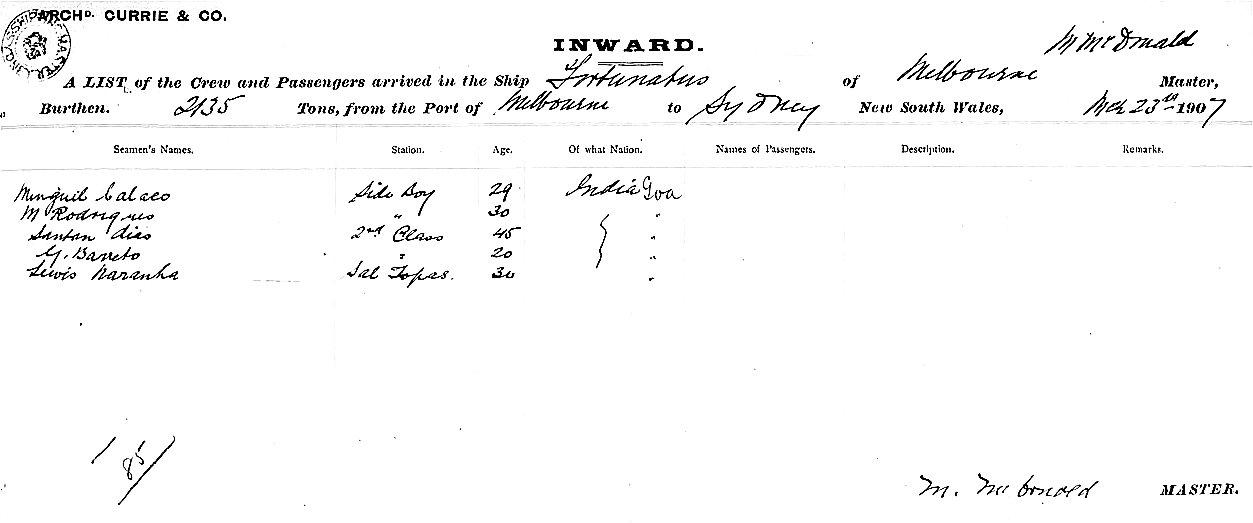 ARCHD. CURRIE & CO.
INWARD.
M McDonald
A LIST of the Crew and Passengers arrived in the Ship Fortunatus of Melbourne Master,
Burthen. 2135 Tons, from the Port of Melbourne to Sydney New South Wales, Mch 23rd 1907
Seamen's Names. Station. Age. Of what Nation. Names of Passengers. Description. Remarks.
Minguil Calaco Side Boy 29 India Goa
M Rodrigues " 30 "
Santan dias 2nd Class 45 "
G. Barreto " 20 "
Lewis Naranha Sal Topas. 30 "
1 85/
M. McDonald MASTER.